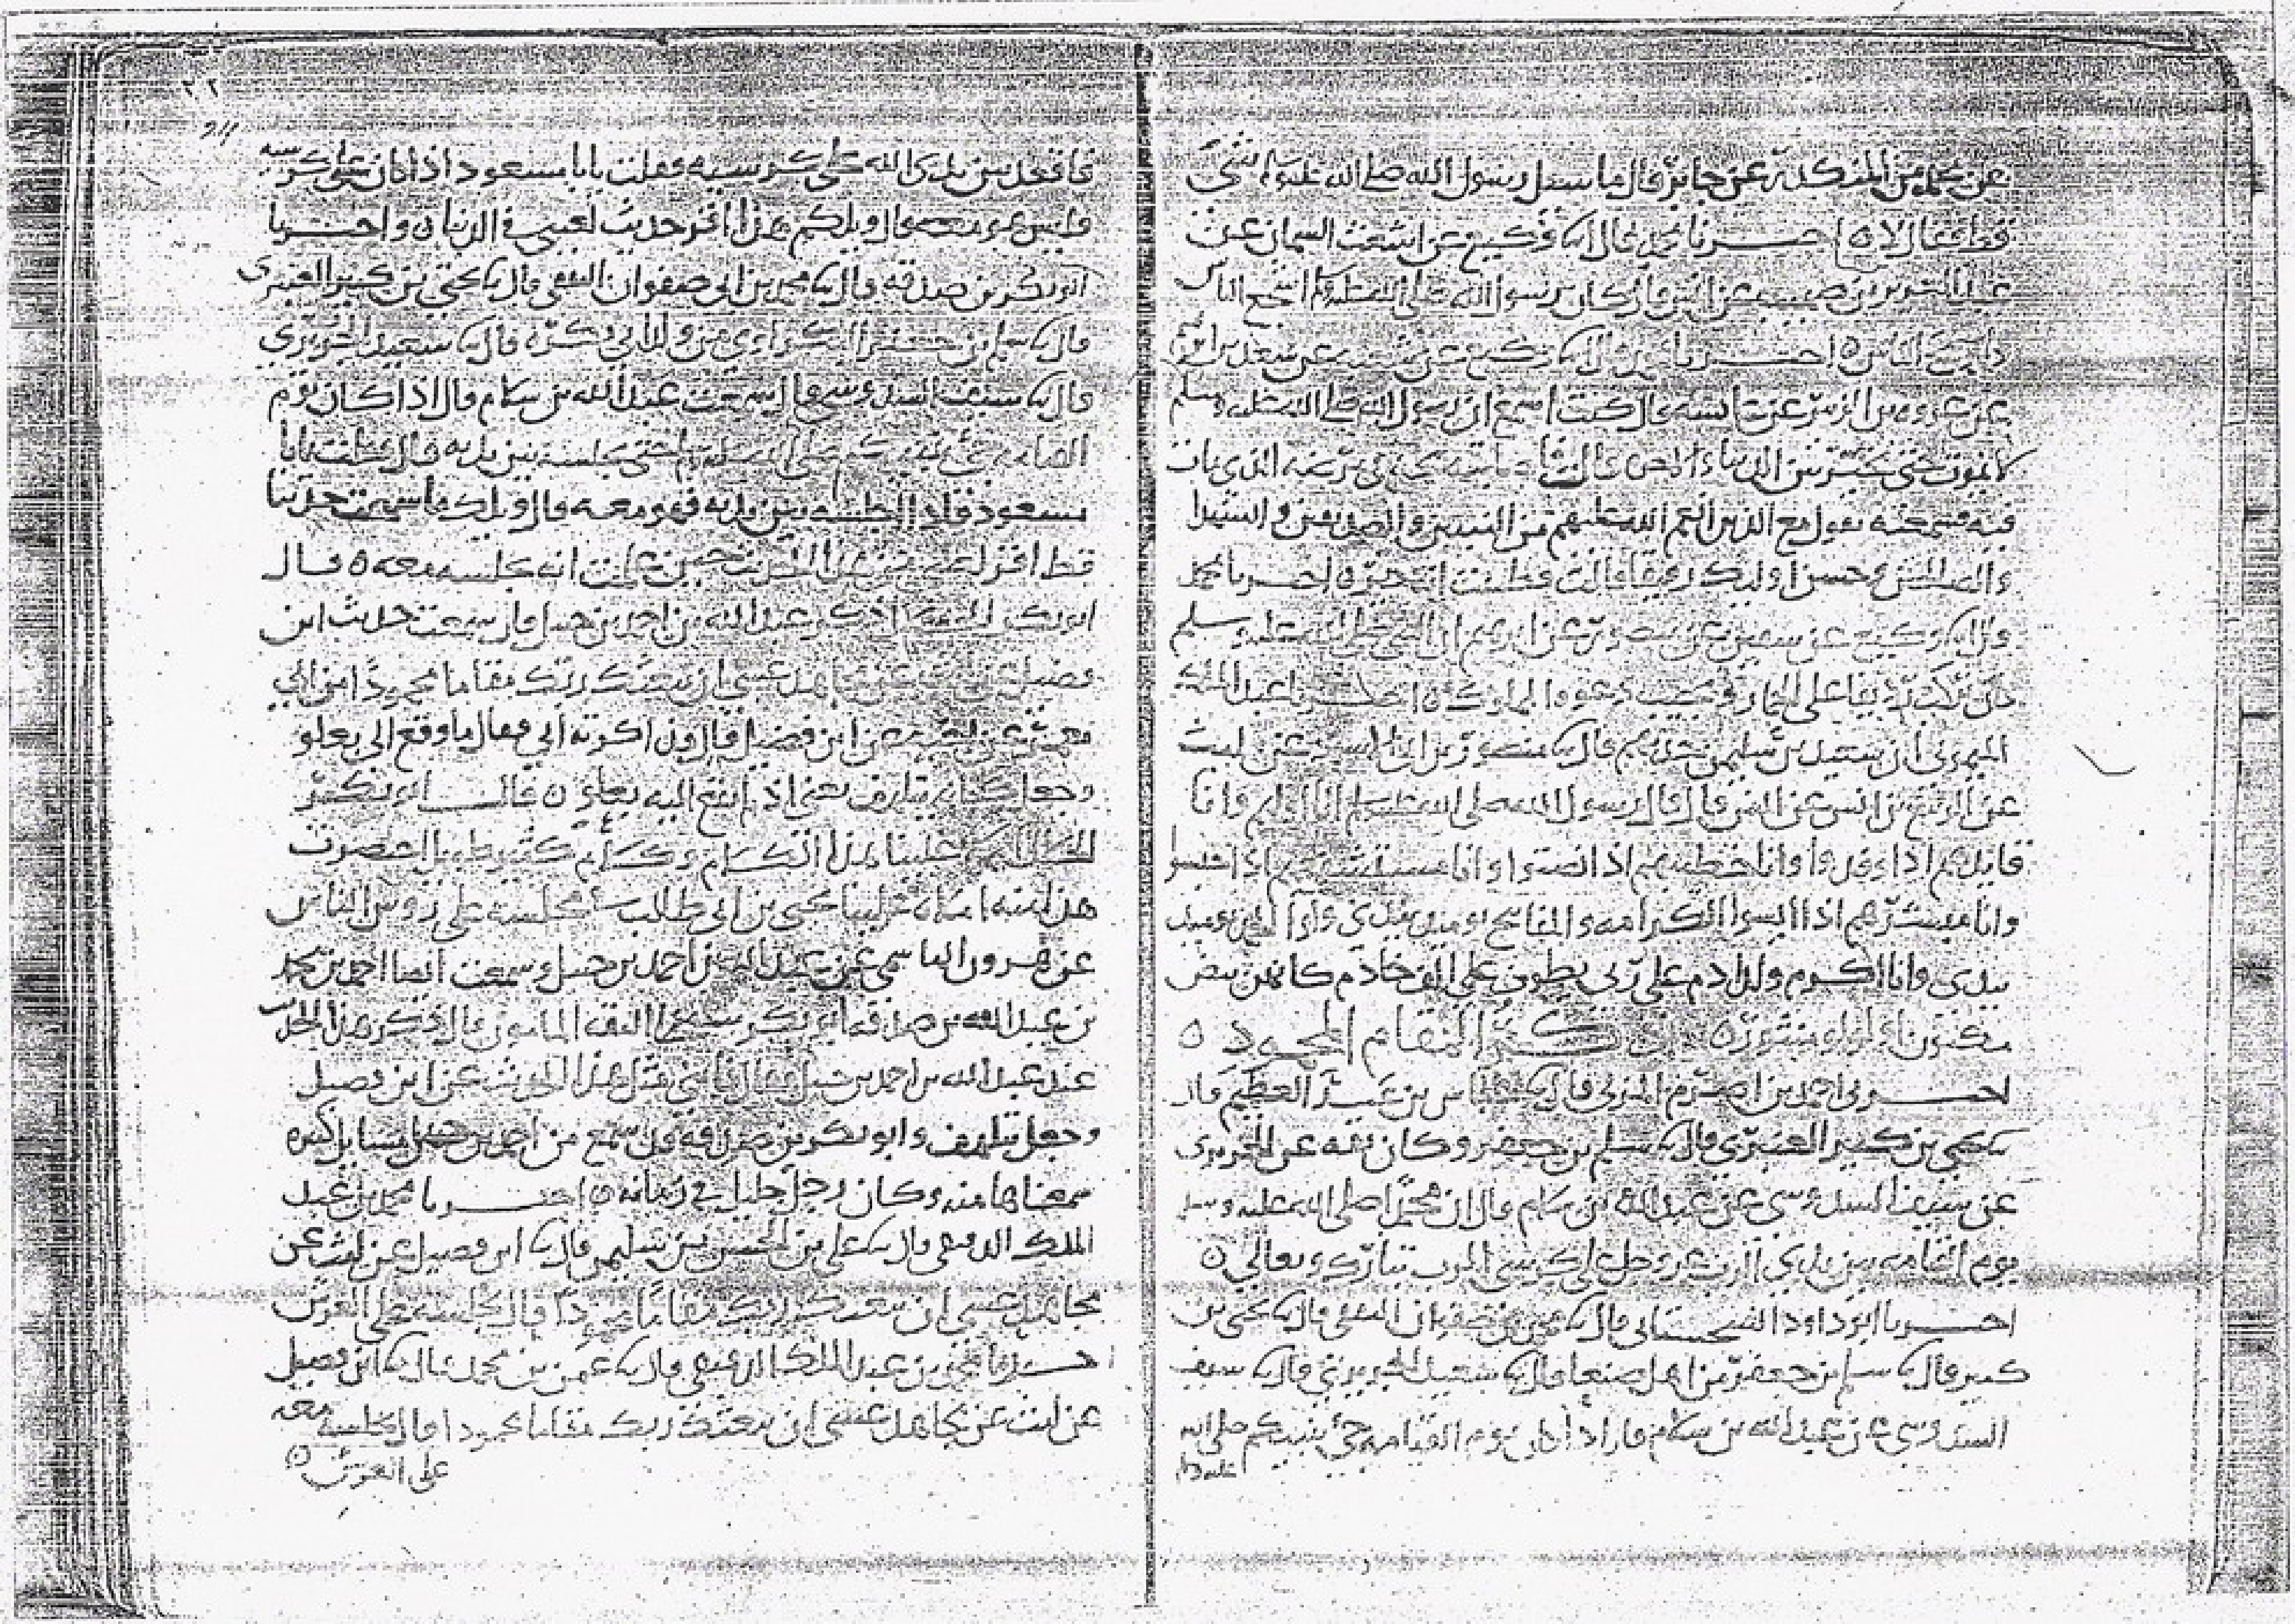 عن محمد بن المنكدر عن جابر قال ما سيل رسول الله صلى الله عليه وسلم شي
قط فقال لا ه اخبرنا محمد قال نا وكيع عن اشعث السمان عن
عبد العزيز بن صهيب عن انس قال كان رسول الله صلى الله عليه وسلم اشجع الناس
الناس ه اخبرنا محمد قال نا وكيع عن شعبة عن سعد بن ابرهيم
عن عروه بن الزبير عن عايشه قالت كنت اسمع ان رسول الله صلى الله عليه وسلم
لا يموت حتى يخير بين الدنيا والاخره قالت فاصابته بحة في مرضه الذي مات
فيه فسمعته يقول مع الذين انعم الله عليهم من النبيين والصديقين والشهدا
والصالحين وحسن اوليك رفيقا قالت فظننت انه خير ه اخبرنا محمد
قال نا وكيع عن سفين عن منصور عن ابرهيم ان النبي صلى الله عليه وسلم
كان يركب رديفا على الحمار ويجيب دعوه المملوك ه اخبرنا عبد الملك
الميموني ان سعيد بن سليمن حدثهم قال نا منصور بن ابي الاسود عن ليث
عن الربيع بن انس عن انس قال قال رسول الله صلى الله عليه وسلم انا اولهم وانا
قايدهم اذا وفدوا وانا خطيبهم اذا انصتوا وانا مستشفعهم اذا احبسوا
وانا مبشرهم اذا ايسوا الكرامه والمفاتيح يوميذ بيدي ولوا الحمد يوميذ
بيدي وانا اكرم ولد ادم على ربي يطوف علي الف خادم كانهن بيض
مكنون او لولو منثور ه ذكر المقام المحمود ه
اخبرني احمد بن اصرم المزني قال نا عباس بن عبد العظيم قال
نا يحيى بن كثير العنبري قال نا سلم بن جعفر وكان ثقه عن الجريري
عن سيف السدوسي عن عبد الله بن سلام قال ان محمدا صلى الله عليه وسلم
يوم القيامه بين يدي الرب عز وجل على كرسي الرب تبارك وتعالى ه
اخبرنا ابو داود السجستاني قال نا محمد بن صفوان الثقفي قال نا يحيى بن
كثير قال نا سلم بن جعفر من اهل صنعا قال نا سعيد الجريري قال نا سيف
السدوسي عن عبد الله بن سلام قال اذا كان يوم القيامه جيء بنبيكم صلى الله
عليه وسلم
٢٢
فاقعد بين يدي الله على كرسيه فقلت يابا مسعود اذا كان على كرسيه
فليس هو معه قال ويلكم هذا اقر حديث لعيني في الدنيا ه واخبرنا
ابو بكر بن صدقه قال نا محمد بن ابي صفوان الثقفي قال نا يحيى بن كثير العنبري
قال نا سلم بن جعفر البكراوي من ولد ابي بكرة قال نا سعيد الجريري
قال نا سيف السدوسي قال سمعت عبد الله بن سلام قال اذا كان يوم
القيامه جيء بنبيكم صلى الله عليه وسلم حتى يجلسه بين يديه قال فقلت يابا
مسعود فاذا اجلسه بين يديه فهو معه قال ويلك ما سمعت حديثا
قط اقر لعيني من هذا الحديث حين علمت انه يجلسه معه ه قال
ابو بكر المروذي ذكر عبد الله بن احمد بن حنبل قال سمعت حديث ابن
فضيل عن ليث عن مجاهد عسى ان يبعثك ربك مقاما محمودا من ابي
معمر عن اخيه عن ابن فضيل قال وذاكرته ابي فقال ما وقع الي بعلو
وجعل كانه يتلهف يعني اذ لم يقع اليه بعلو ه قالـ ابو بكر
عليناهذا الكلام
عن هرون الهاشمي عن عبد الله بن احمد بن حنبل وسمعت ايضا احمد بن محمد
بن عبد الله بن صدقه ابو بكر الثقه المامون قال ذكر هذا الحديث
عند عبد الله بن احمد بن حنبل فقال هذا الحديث عن ابن فضيل
وجعل يتلهف وابو بكر بن صدقه قد سمع من احمد بن حنبل مسايل كثيره
سمعناها منه وكان رجل جليل في زمانه ه اخبرنا محمد بن عبد
الملك الدقيقي قال نا علي بن الحسن بن سليمن قال نا ابن فضيل عن ليث عن
مجاهد عسى ان يبعثك ربك مقاما محمودا قال يجلسه على العرش
اخبرنا محمد بن عبد الملك الدقيقي قال نا عثمن بن محمد قال نا ابن فضيل
عن ليث عن مجاهد عسى ان يبعثك ربك مقاما محمودا قال يجلسه معه
على العرش ه